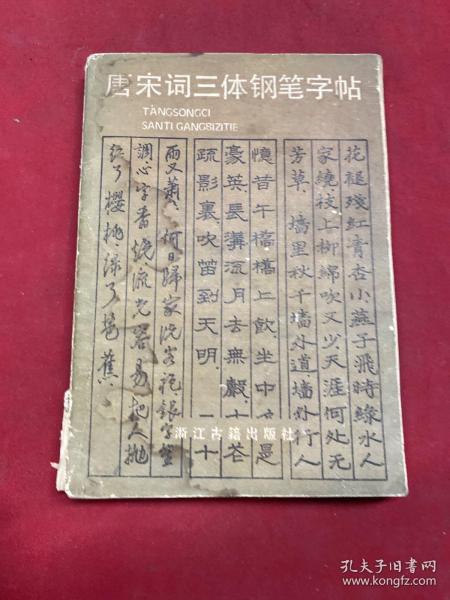 唐宋词三体钢笔字帖
TANGSONGCI
SANTI GANGBIZITIE
花褪殘紅青杏小燕子飛時綠水人
家繞枝上柳綿吹又少天涯何处无
芳草墙里秋千墙外道墙外行人
憶昔午橋橋上飲坐中是
豪英長溝流月去無聲杏花
疏影裏吹笛到天明二十
雨又蕭何日歸家洗客袍銀字笙
調心字香燒流光容易把人抛
红了樱桃绿了芭蕉
浙江古籍出版社
孔夫子旧书网
www.kongfz.com